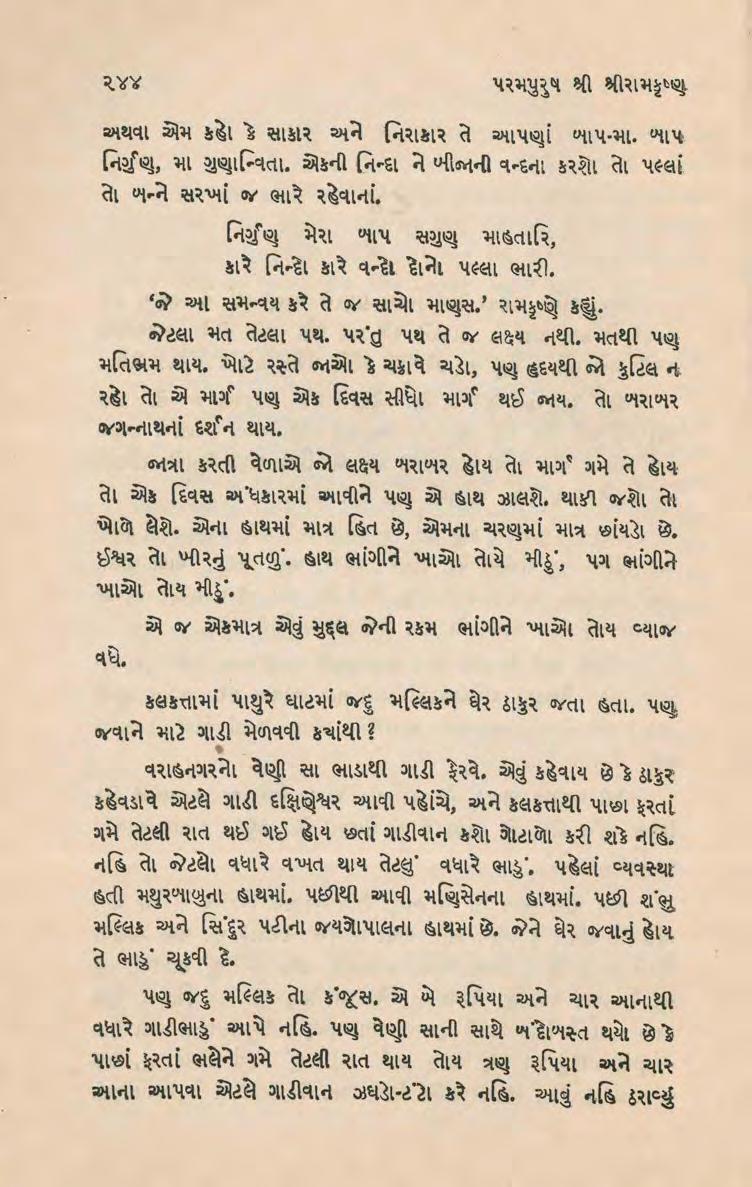 ૨૪૪ પરમપુરુષ શ્રી શ્રીરામકૃષ્ણ
અથવા એમ કહો કે સાકાર અને નિરાકાર તે આપણાં બાપ-મા. બાપ
નિર્ગુણ, મા ગુણાન્વિતા. એકની નિન્દા ને બીજાની વન્દના કરશો તો પલ્લાં
તો બન્ને સરખાં જ ભારે રહેવાનાં.
નિર્ગુણ મેરા બાપ સગુણ માહતારિ,
કારે નિન્દો કારે વન્દો દોનો પલ્લા ભારી.
‘જે આ સમન્વય કરે તે જ સાચો માણસ.’ રામકૃષ્ણે કહ્યું.
જેટલા મત તેટલા પથ. પરંતુ પથ તે જ લક્ષ્ય નથી. મતથી પણ
મતિભ્રમ થાય. ખોટે રસ્તે જાઓ કે ચક્રાવે ચડો, પણ હૃદયથી જો કુટિલ ન
રહો તો એ માર્ગ પણ એક દિવસ સીધો માર્ગ થઈ જાય. તો બરાબર
જગન્નાથનાં દર્શન થાય.
જાત્રા કરતી વેળાએ જો લક્ષ્ય બરાબર હોય તો માર્ગ ગમે તે હોય
તો એક દિવસ અંધકારમાં આવીને પણ એ હાથ ઝાલશે. થાકી જશો તો
ખોળે લેશે. એના હાથમાં માત્ર હિત છે, એમના ચરણમાં માત્ર છાંયડો છે.
ઈશ્વર તો ખીરનું પૂતળું. હાથ ભાંગીને ખાઓ તોયે મીઠું, પગ ભાંગીને
ખાઓ તોય મીઠું.
એ જ એકમાત્ર એવું મુદ્દલ જેની રકમ ભાંગીને ખાઓ તોય વ્યાજ
વધે.
કલકત્તામાં પાથુરે ઘાટમાં જદુ મલ્લિકને ઘેર ઠાકુર જતા હતા. પણ
જવાને માટે ગાડી મેળવવી ક્યાંથી ?
વરાહનગરનો વેણી સા ભાડાથી ગાડી ફેરવે. એવું કહેવાય છે કે ઠાકુર
કહેવડાવે એટલે ગાડી દક્ષિણેશ્વર આવી પહોંચે, અને કલકત્તાથી પાછા ફરતાં
ગમે તેટલી રાત થઈ ગઈ હોય છતાં ગાડીવાન કશો ગોટાળો કરી શકે નહિ.
નહિ તો જેટલો વધારે વખત થાય તેટલું વધારે ભાડું. પહેલાં વ્યવસ્થા
હતી મથુરબાબુના હાથમાં. પછીથી આવી મણિસેનના હાથમાં. પછી શંભુ
મલ્લિક અને સિંદુર પટીના જયગોપાલના હાથમાં છે. જેને ઘેર જવાનું હોય
તે ભાડું ચૂકવી દે.
પણ જદુ મલ્લિક તો કંજૂસ. એ બે રૂપિયા અને ચાર આનાથી
વધારે ગાડીભાડું આપે નહિ. પણ વેણી સાની સાથે બંદોબસ્ત થયો છે કે
પાછાં ફરતાં ભલેને ગમે તેટલી રાત થાય તોય ત્રણ રૂપિયા અને ચાર
આના આપવા એટલે ગાડીવાન ઝઘડો-ટંટો કરે નહિ. આવું નહિ ઠરાવ્યું